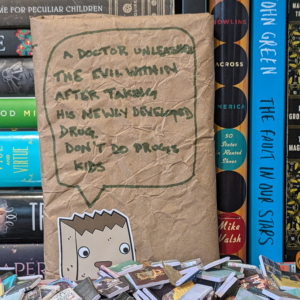 HOME FOR PECULIAR CHILDREN
A DOCTOR UNLEASHES
THE EVIL WITHIN
AFTER TAKING
HIS NEWLY DEVELOPED
DRUG.
DON'T DO DRUGS
KIDS
BOWLING
ACROSS
AMERICA
50
States
in Rented
Shoes
Mike
Walsh
JOHN GREEN
THE FAULT IN OUR STARS
VIRTUE